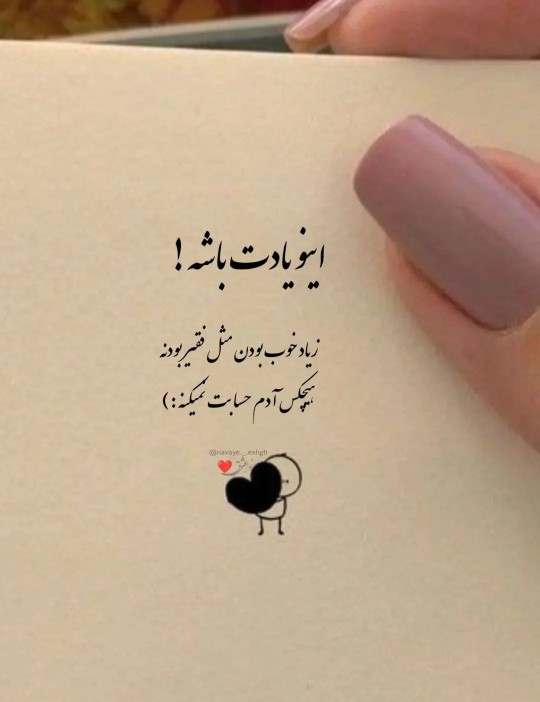 اینو یادت باشه !
زیاد خوب بودن مثل فقیر بودنه
هیچکس آدم حسابت نمیکنه : )
@navaye._.eshgh